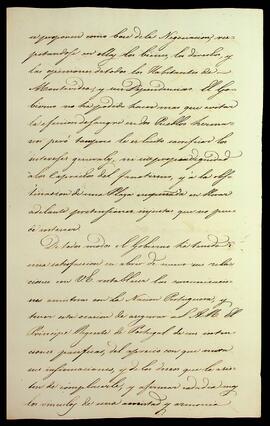 se proponen como base de la Negociacion, res-
petandose en ellas los bienes, los derechos, y
las opiniones de todos los Habitantes de
Montevideo, y sus Dependencias. El Go-
bierno no ha podido hacer mas que evitar
la efusion de sangre en dos Pueblos herma-
nos pero tampoco le es licito sacrificar los
intereses generales, ni su propia dignidad
a los Caprichos del fanatismo, y a la obs-
tinacion de una Plaza empeñada en llevar
adelante pretensiones injustas que no pue-
de
De todos modos el Gobierno ha tenido
una satisfaccion en abrir de nuevo sus rela-
ciones con V.E. restablecer las comunicaciones
amistosas con la Nacion Portuguesa, y
tener esta ocasion de asegurar a S. A. R. El
Principe Regente de Portugal de sus inten-
ciones pacificas, del aprecio con que mira
sus insinuaciones, y de los deseos que le asis-
ten de complacerle, y afirmar cada dia mas
los vinculos de una amistad y armonia